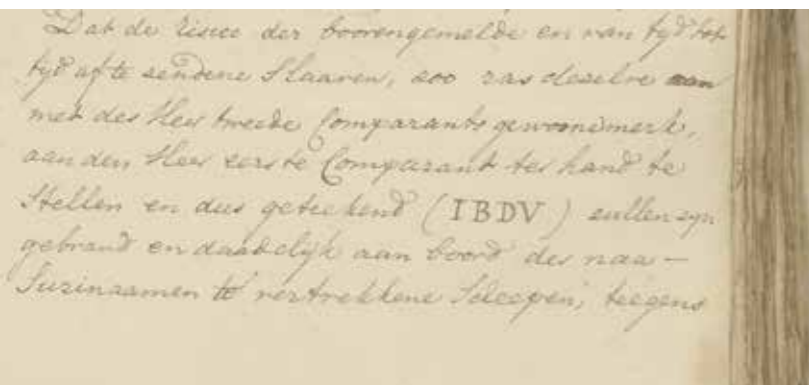 Dat de risico der boovengemelde en van tyd tot
tyd af te sendene Slaaven, soo ras deselve
met des Heer tweede Comparants gewoone merk,
aan den Heer eerste Comparant ter hand te
Stellen en dus geteekend (IBDV) sullen syn
gebrand en daadelyk aan boord der naa-
Surinaamen te vertrekkene Scheepen, teegens